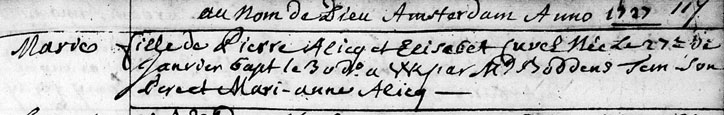 au Nom de Dieu Amsterdam Anno 1727 117
Marie fille de Pierre Alicq et Elisabet Cuvel Née Le 27e de
Janvier bapt le 30 do a WK par Mr Boddens Tem Son
Pere et Mari-anne Alicq —